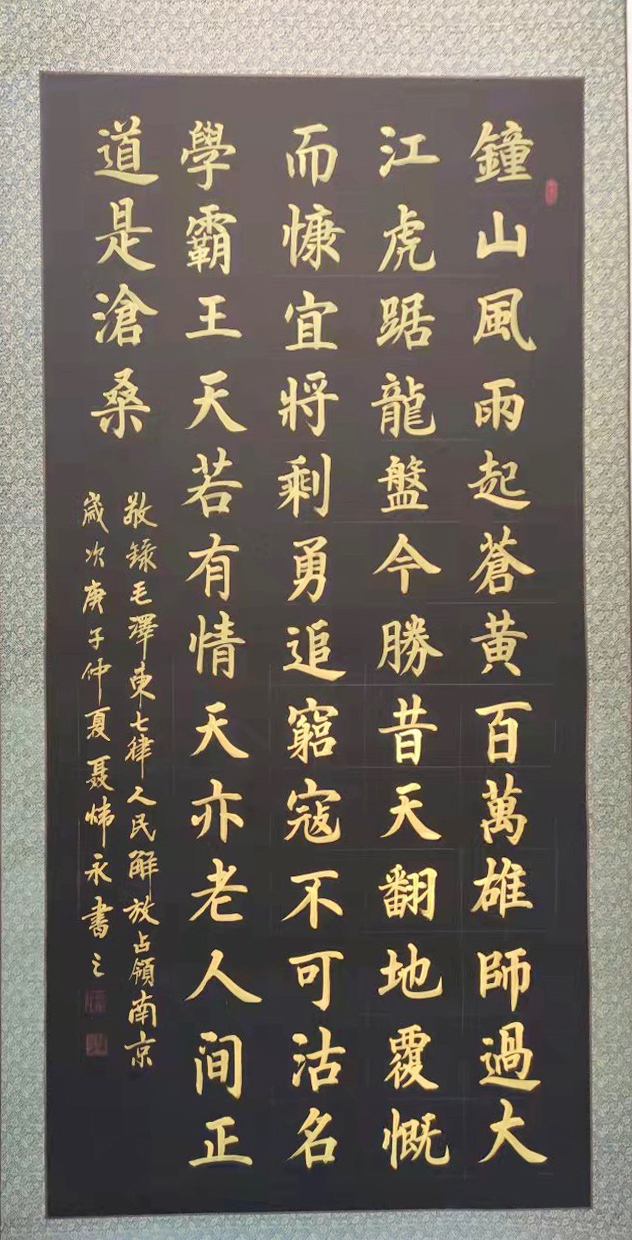 鐘山風雨起蒼黄百萬雄師過大
江虎踞龍盤今勝昔天翻地覆慨
而慷宜将剩勇追窮寇不可沽名
學霸王天若有情天亦老人间正
道是滄桑
敬録毛澤東七律人民解放占領南京
歲次庚子仲夏聂炜永書之